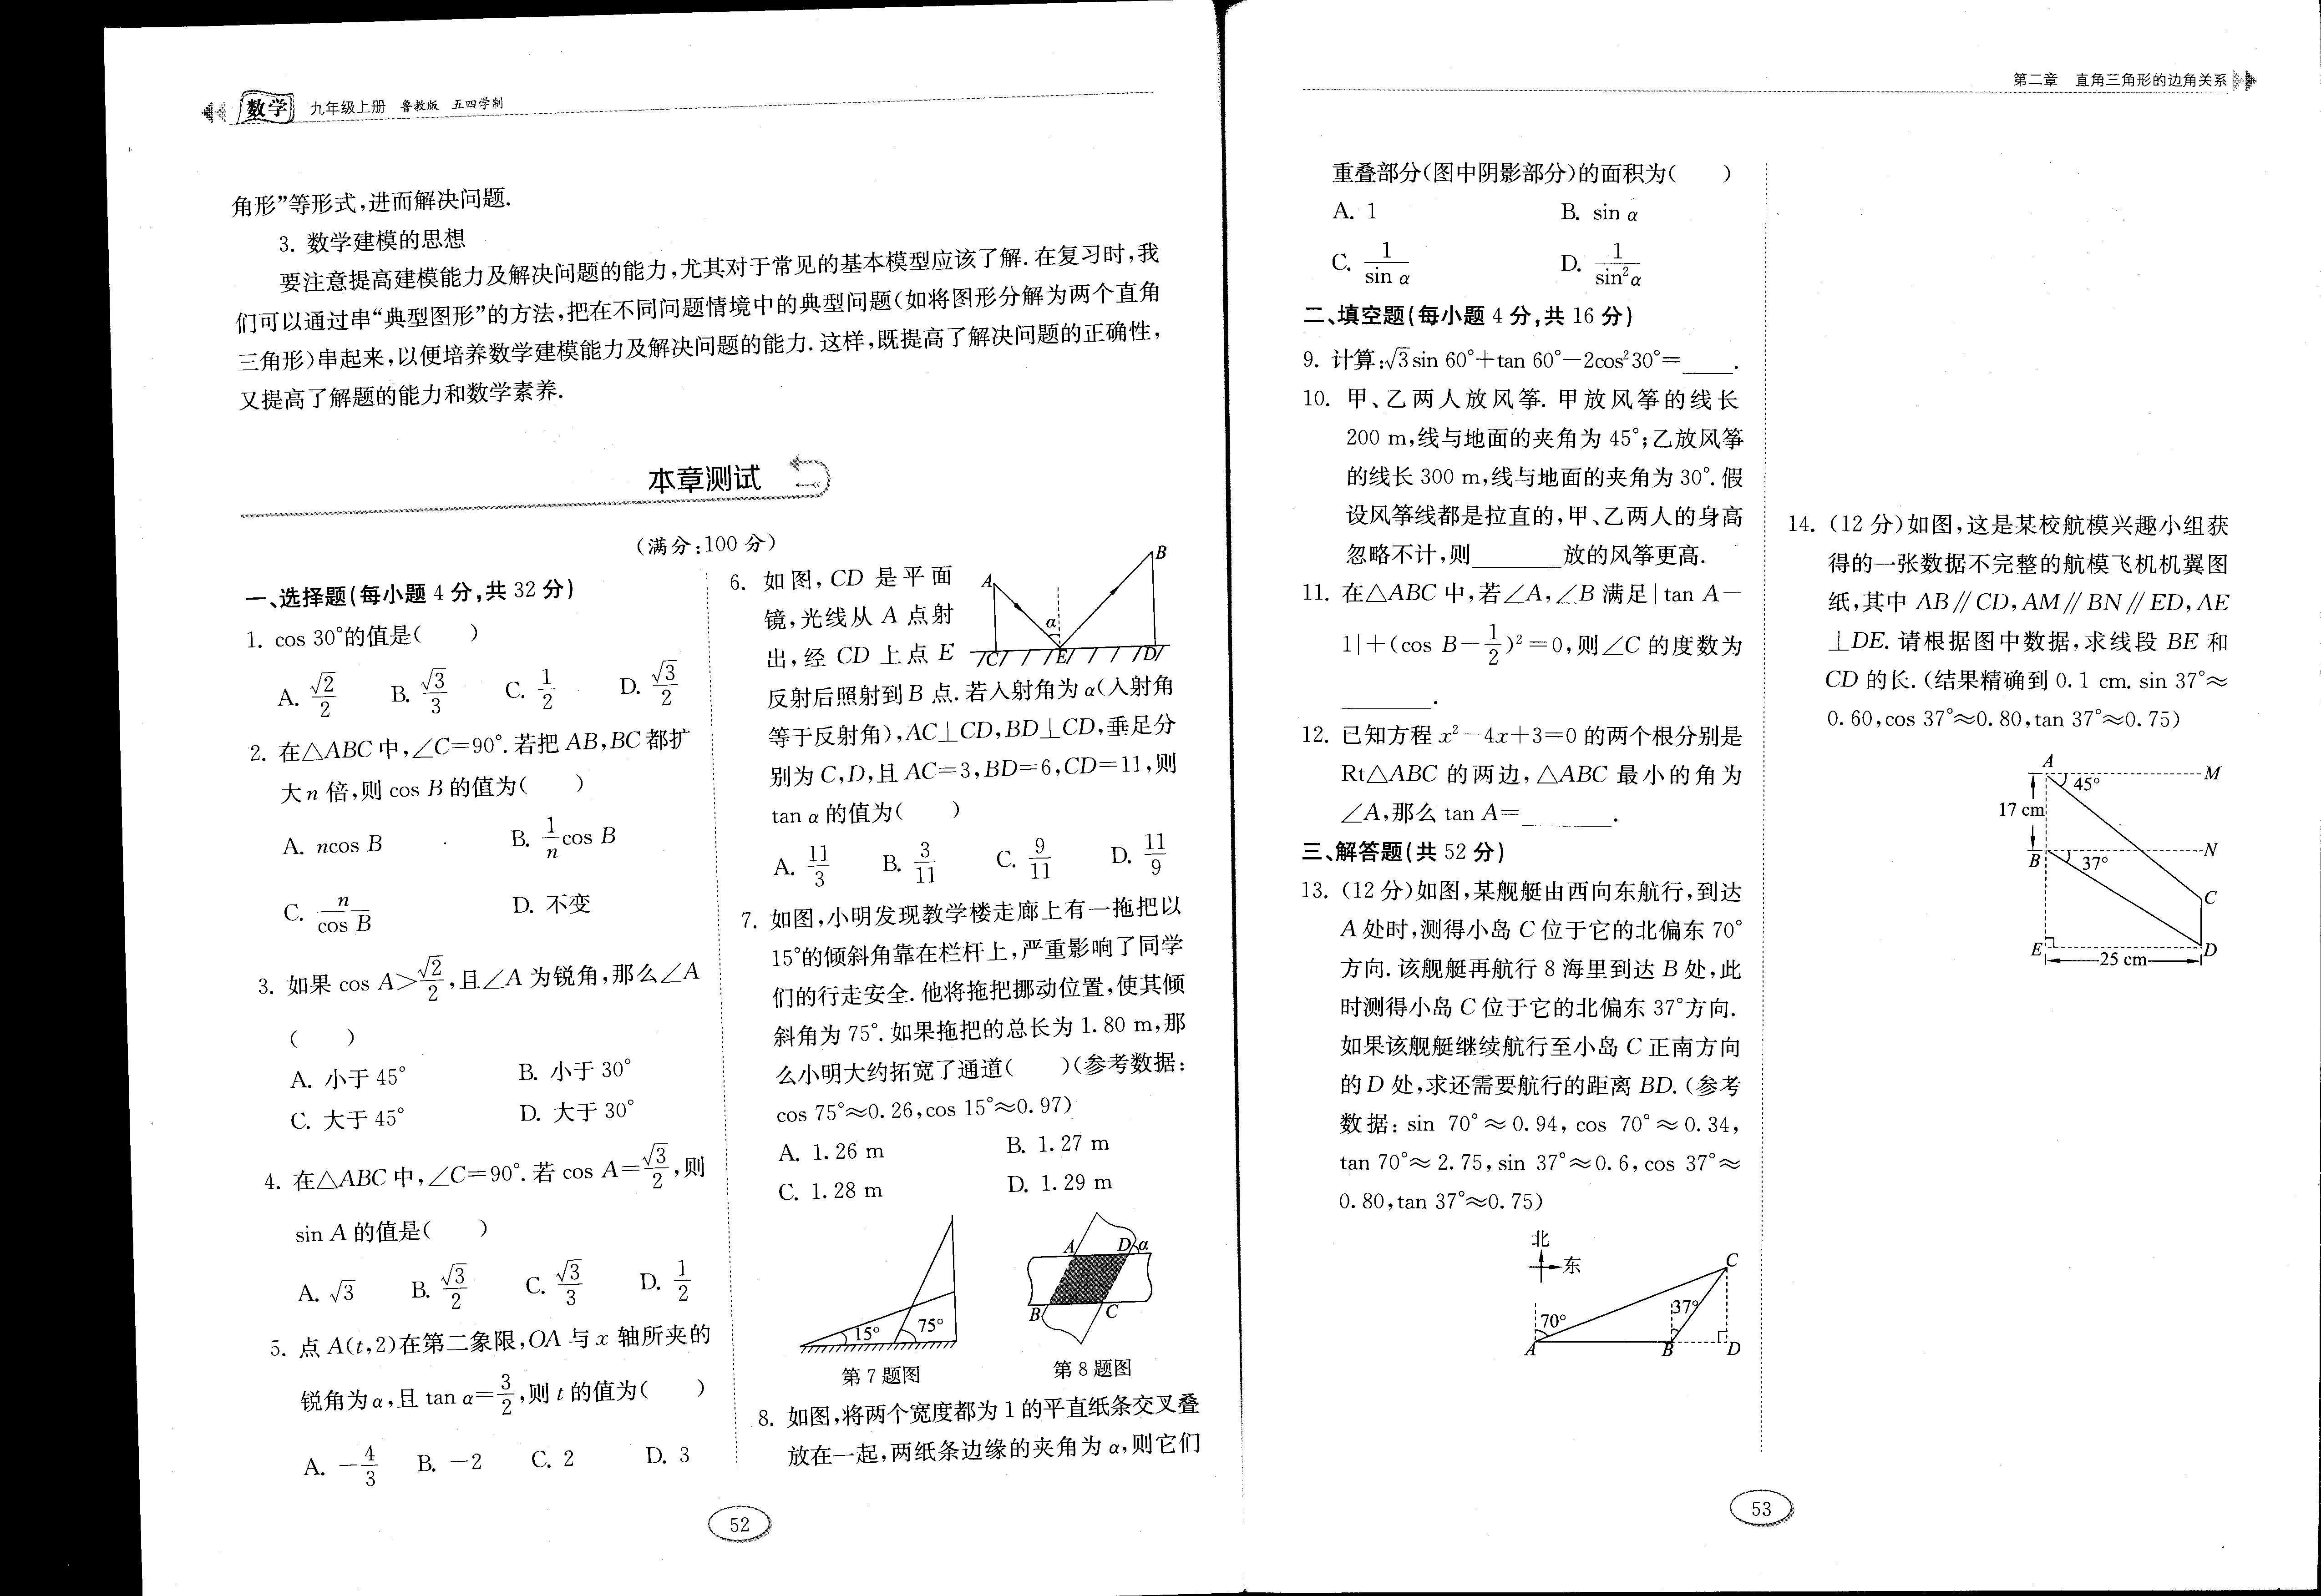 数学 九年级上册 鲁教版 五四学制
角形”等形式,进而解决问题.
3. 数学建模的思想
要注意提高建模能力及解决问题的能力,尤其对于常见的基本模型应该了解.在复习时,我
们可以通过串“典型图形”的方法,把在不同问题情境中的典型问题(如将图形分解为两个直角
三角形)串起来,以便培养数学建模能力及解决问题的能力.这样,既提高了解决问题的正确性,
又提高了解题的能力和数学素养.
本章测试
(满分:100 分)
一、选择题(每小题 4 分,共 32 分)
1. cos 30°的值是(  )
A. √2/2 B. √3/3 C. 1/2 D. √3/2
2. 在△ABC 中,∠C=90°.若把 AB,BC 都扩
大 n 倍,则 cos B 的值为(  )
A. ncos B B. 1/n cos B
C. n/cos B D. 不变
3. 如果 cos A>√2/2,且∠A 为锐角,那么∠A
(  )
A. 小于 45° B. 小于 30°
C. 大于 45° D. 大于 30°
4. 在△ABC 中,∠C=90°.若 cos A=√3/2,则
sin A 的值是(  )
A. √3 B. √3/2 C. √3/3 D. 1/2
5. 点 A(t,2)在第二象限,OA 与 x 轴所夹的
锐角为 α,且 tan α=3/2,则 t 的值为(  )
A. −4/3 B. −2 C. 2 D. 3
6. 如图,CD 是平面
镜,光线从 A 点射
出,经 CD 上点 E
反射后照射到 B 点.若入射角为 α(入射角
等于反射角),AC⊥CD,BD⊥CD,垂足分
别为 C,D,且 AC=3,BD=6,CD=11,则
tan α 的值为(  )
A. 11/3 B. 3/11 C. 9/11 D. 11/9
A B α C E D
7. 如图,小明发现教学楼走廊上有一拖把以
15°的倾斜角靠在栏杆上,严重影响了同学
们的行走安全.他将拖把挪动位置,使其倾
斜角为 75°.如果拖把的总长为 1.80 m,那
么小明大约拓宽了通道(  )(参考数据:
cos 75°≈0.26,cos 15°≈0.97)
A. 1.26 m B. 1.27 m
C. 1.28 m D. 1.29 m
15° 75°
第 7 题图
A D α B C
第 8 题图
8. 如图,将两个宽度都为 1 的平直纸条交叉叠
放在一起,两纸条边缘的夹角为 α,则它们
52
第二章 直角三角形的边角关系
重叠部分(图中阴影部分)的面积为(  )
A. 1 B. sin α
C. 1/sin α D. 1/sin²α
二、填空题(每小题 4 分,共 16 分)
9. 计算:√3sin 60°+tan 60°−2cos²30°=____.
10. 甲、乙两人放风筝.甲放风筝的线长
200 m,线与地面的夹角为 45°;乙放风筝
的线长 300 m,线与地面的夹角为 30°.假
设风筝线都是拉直的,甲、乙两人的身高
忽略不计,则________放的风筝更高.
11. 在△ABC 中,若∠A,∠B 满足|tan A−
1|+(cos B−1/2)²=0,则∠C 的度数为
________.
12. 已知方程 x²−4x+3=0 的两个根分别是
Rt△ABC 的两边,△ABC 最小的角为
∠A,那么 tan A=________.
三、解答题(共 52 分)
13. (12 分)如图,某舰艇由西向东航行,到达
A 处时,测得小岛 C 位于它的北偏东 70°
方向.该舰艇再航行 8 海里到达 B 处,此
时测得小岛 C 位于它的北偏东 37°方向.
如果该舰艇继续航行至小岛 C 正南方向
的 D 处,求还需要航行的距离 BD.(参考
数据:sin 70°≈0.94,cos 70°≈0.34,
tan 70°≈2.75,sin 37°≈0.6,cos 37°≈
0.80,tan 37°≈0.75)
北
东
C
70° 37°
A B D
14. (12 分)如图,这是某校航模兴趣小组获
得的一张数据不完整的航模飞机机翼图
纸,其中 AB∥CD,AM∥BN∥ED,AE
⊥DE.请根据图中数据,求线段 BE 和
CD 的长.(结果精确到 0.1 cm. sin 37°≈
0.60,cos 37°≈0.80,tan 37°≈0.75)
A M
45°
17 cm
B N
37°
C
E D
25 cm
53